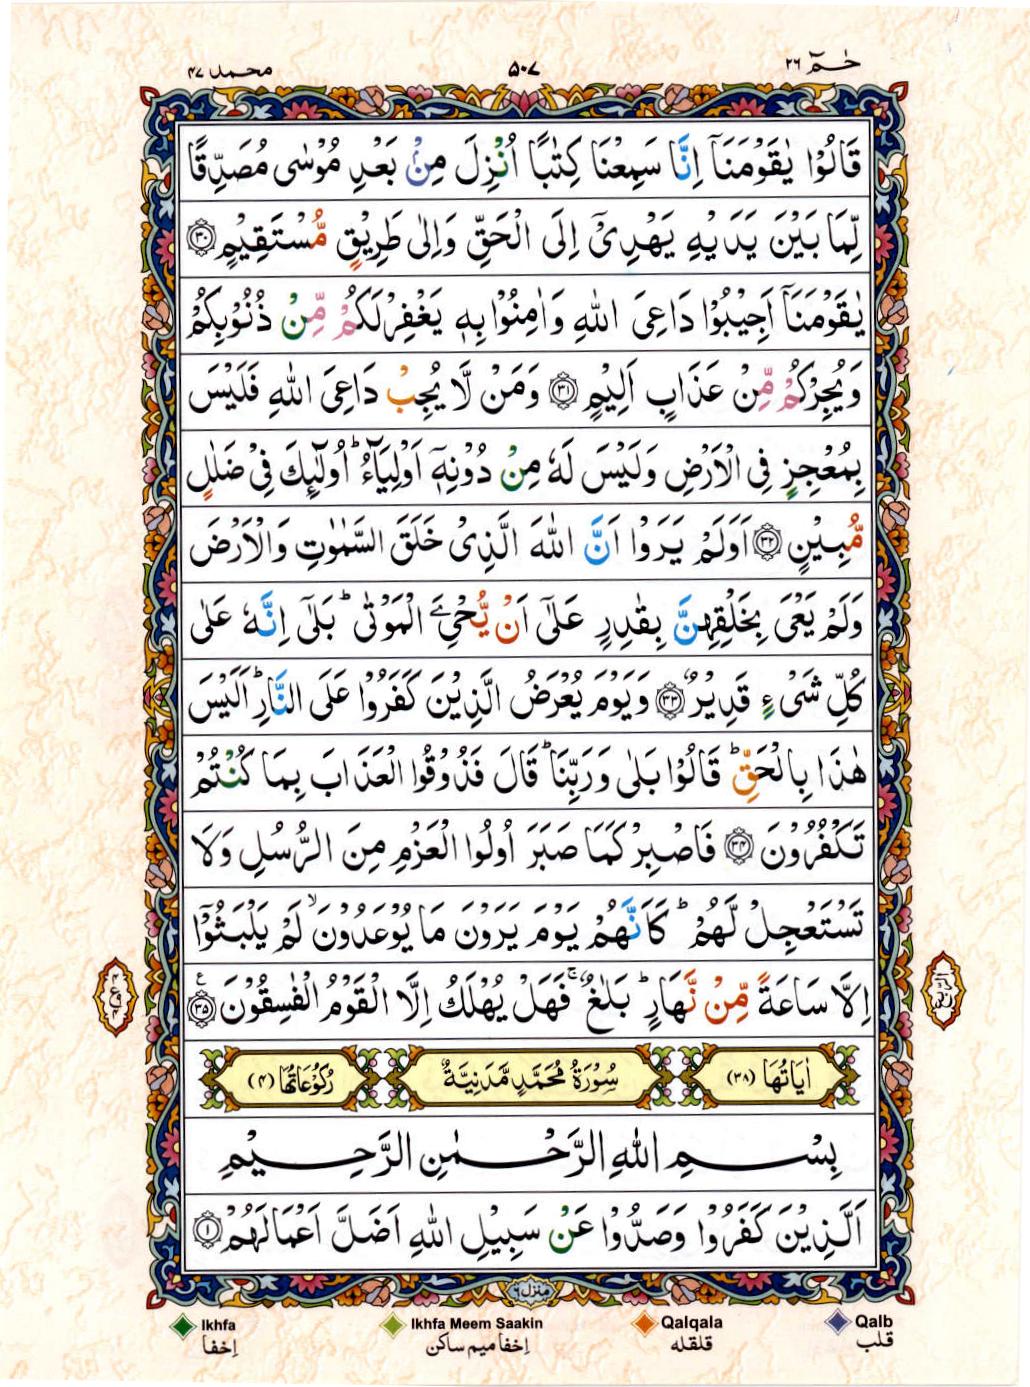 حٰمٓ ٢٦
٥٠٧
محمد ٤٧
قَالُوْا يٰقَوْمَنَاۤ اِنَّا سَمِعْنَا كِتٰبًا اُنْزِلَ مِنْۢ بَعْدِ مُوْسٰى مُصَدِّقًا
لِّمَا بَيْنَ يَدَيْهِ يَهْدِيْۤ اِلَى الْحَقِّ وَاِلٰى طَرِيْقٍ مُّسْتَقِيْمٍ ۝٣٠
يٰقَوْمَنَاۤ اَجِيْبُوْا دَاعِيَ اللّٰهِ وَاٰمِنُوْا بِهٖ يَغْفِرْ لَكُمْ مِّنْ ذُنُوْبِكُمْ
وَيُجِرْكُمْ مِّنْ عَذَابٍ اَلِيْمٍ ۝٣١ وَمَنْ لَّا يُجِبْ دَاعِيَ اللّٰهِ فَلَيْسَ
بِمُعْجِزٍ فِي الْاَرْضِ وَلَيْسَ لَهٗ مِنْ دُوْنِهٖۤ اَوْلِيَآءُ ؕ اُولٰٓئِكَ فِيْ ضَلٰلٍ
مُّبِيْنٍ ۝٣٢ اَوَلَمْ يَرَوْا اَنَّ اللّٰهَ الَّذِيْ خَلَقَ السَّمٰوٰتِ وَالْاَرْضَ
وَلَمْ يَعْيَ بِخَلْقِهِنَّ بِقٰدِرٍ عَلٰۤى اَنْ يُّحْيِۦَ الْمَوْتٰى ؕ بَلٰۤى اِنَّهٗ عَلٰى
كُلِّ شَيْءٍ قَدِيْرٌ ۝٣٣ وَيَوْمَ يُعْرَضُ الَّذِيْنَ كَفَرُوْا عَلَى النَّارِ ؕ اَلَيْسَ
هٰذَا بِالْحَقِّ ؕ قَالُوْا بَلٰى وَرَبِّنَا ؕ قَالَ فَذُوْقُوا الْعَذَابَ بِمَا كُنْتُمْ
تَكْفُرُوْنَ ۝٣٤ فَاصْبِرْ كَمَا صَبَرَ اُولُوا الْعَزْمِ مِنَ الرُّسُلِ وَلَا
تَسْتَعْجِلْ لَّهُمْ ؕ كَاَنَّهُمْ يَوْمَ يَرَوْنَ مَا يُوْعَدُوْنَ ۙ لَمْ يَلْبَثُوْۤا
اِلَّا سَاعَةً مِّنْ نَّهَارٍ ؕ بَلٰغٌ ۚ فَهَلْ يُهْلَكُ اِلَّا الْقَوْمُ الْفٰسِقُوْنَ ۝٣٥ ع
الربع
اٰيَاتُهَا (٣٨)
سُوْرَةُ مُحَمَّدٍ مَّدَنِيَّةٌ
رُكُوْعَاتُهَا (٤)
بِسْمِ اللّٰهِ الرَّحْمٰنِ الرَّحِيْمِ
اَلَّذِيْنَ كَفَرُوْا وَصَدُّوْا عَنْ سَبِيْلِ اللّٰهِ اَضَلَّ اَعْمَالَهُمْ ۝١
منزل ٦
Ikhfa
Ikhfa Meem Saakin
Qalqala
Qalb
اِخفا
اِخفا میم ساکن
قلقله
قلب